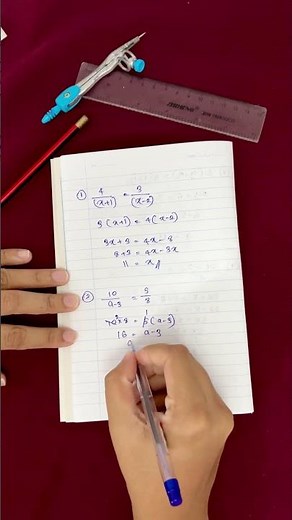 ① 4/(x+1) = 3/(x-2)
3(x+1) = 4(x-2)
3x+3 = 4x-8
8+3 = 4x-3x
11 = x
② 10/a-3 = 5/8
10² × 8 = 5¹(a-3)
16 = a-3